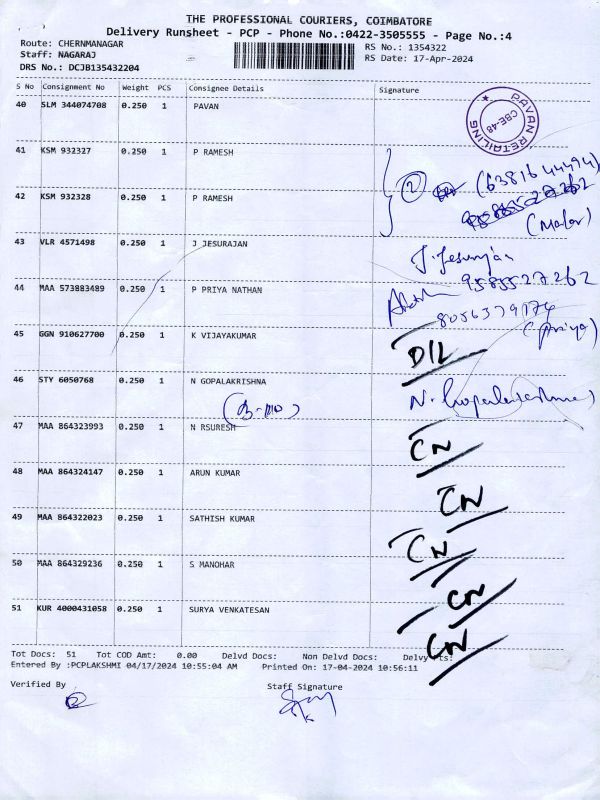 THE PROFESSIONAL COURIERS, COIMBATORE
Delivery Runsheet - PCP - Phone No.:0422-3505555 - Page No.:4
Route: CHERNMANAGAR
Staff: NAGARAJ
DRS No.: DCJB135432204
RS No.: 1354322
RS Date: 17-Apr-2024
S No Consignment No Weight PCS Consignee Details Signature
40 SLM 344074708 0.250 1 PAVAN
PAVAN RETAILING
CBE-48
41 KSM 932327 0.250 1 P RAMESH
(2) (6381644494)
42 KSM 932328 0.250 1 P RAMESH
43 VLR 4571498 0.250 1 J JESURAJAN
J. Jesurajan
9585527262
44 MAA 573883489 0.250 1 P PRIYA NATHAN
8056379174
(priya)
45 GGN 910627700 0.250 1 K VIJAYAKUMAR
D/L
46 STY 6050768 0.250 1 N GOPALAKRISHNA
N. Gopalakrishna
47 MAA 864323993 0.250 1 N RSURESH
CN
48 MAA 864324147 0.250 1 ARUN KUMAR
CN
49 MAA 864322023 0.250 1 SATHISH KUMAR
CN
50 MAA 864329236 0.250 1 S MANOHAR
CN
51 KUR 4000431058 0.250 1 SURYA VENKATESAN
CN
Tot Docs: 51 Tot COD Amt: 0.00 Delvd Docs: Non Delvd Docs: Delvy Pts:
Entered By :PCPLAKSHMI 04/17/2024 10:55:04 AM Printed On: 17-04-2024 10:56:11
Verified By
Staff Signature